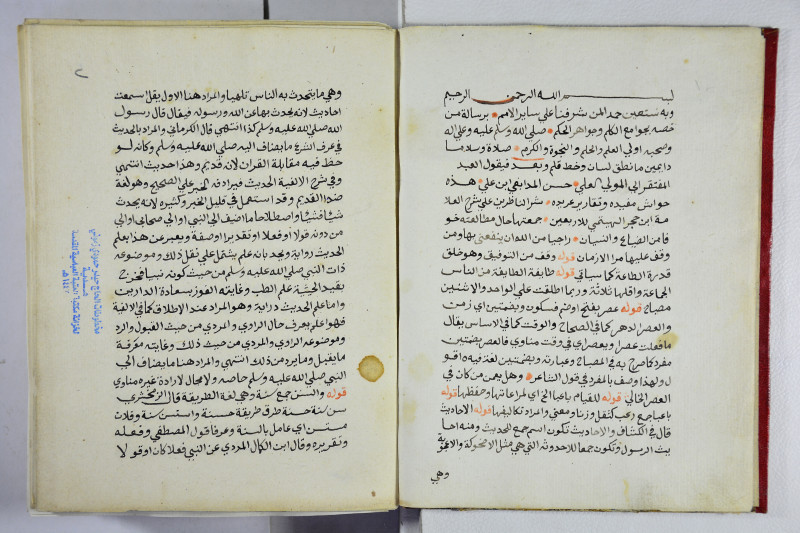 بسم الله الرحمن الرحيم
وبه نستعين حمد المن شرفنا على ساير الامم برسالة من
خصه بجوامع الكلم وجواهر الحكم صلى الله وسلم عليه وعلى اله
وصحبه اولى العلم والحلم والنجوة والكرم صلاة وسلاما
دايمين ما نطق لسان وخط قلم وبعد فيقول العبد
المفتقر الى المولى العلي حسن المدابغي بن علي هذه
حواش مفيده وتقارير عريده شرانا ظرين على شرح العلا
مة ابن حجر الهيتمي للاربعين جمعتها حال مطالعته خو
فا من الضياع والنسيان راجيا من اللدان ينفعنى بها ومن
وقف عليها مر الازمان قوله وقف من التوفيق وهو خلق
قدرة الطاعة كما سياتي قوله طايفة الطايفة من الناس
الجماعة واقلها ثلاثة وربما اطلقت على الواحد والاثنين
مصباح قوله عصر بفتح او ضم فسكون وبضمتين اي زمن
والعصر الدهر كما في الصحاح والوقت كما في الاساس يقال
ما فعلت عصرا وبعصر اي في وقت مناوي فالعصر بضمتين
مفرد كما صرح به في المصباح وعبارته وبضمتين لغة فيه اقو
ل ولهذا وصف بالمفرد في قول الشاعر وهل يعمن من كان في
العصر الخالي قوله للقيام باعبا الخ اي لمراعاتها وحفظها قوله
باعبا جمع عبء كثقل وزنا ومعنى والمراد تكاليفها قوله الاحاديث
قال في الكشاف والاحاديث تكون اسم جمع للحديث ومنه احا
يث الرسول وتكون جمعا للاحدوثه التي هي مثل الاضحوكة والاعجوبة
وهي
وهي ما يتحدث به الناس تلهيا والمراد هنا الاول يقل سمعت
احاديث لانه يحدث بها عن الله ورسوله فيقال قال رسول
الله صلى الله عليه وسلم كذا انتهى قال الكرماني والمراد بالحديث
في عرف الشرع ما يضاف اليه صلى الله عليه وسلم وكانه لو
حظ فيه مقابلة القران لانه قديم وهذا حديث انتهى
وفي شرح الالفية الحديث ويرادفه الخبر على الصحيح وهو لغة
ضد القديم وقد استعمل في قليل الخبر وكثيره لانه يحدث
شيا فشيا واصطلاحا ما اضيف الى النبي او الى صحابي او الى
من دونه قولا او فعلا او تقديرا او صفة ويعبر عن هذا بعلم
الحديث رواية ويحد بانه علم يشتمل على نقل ذلك وموضوعه
ذات النبي صلى الله عليه وسلم من حيث كونه نبيا فخرج
بقيد الحيثية علم الطب وغايته الفوز بسعادة الدارين
واما علم الحديث دراية وهو المراد عند الاطلاق كما في الالفية
فهو علم يعرف به حال الراوي والمروي من حيث القبول والرد
وموضوعه الراوي والمروي من حيث ذلك وغايته معرفة
ما يقبل وما يرد من ذلك انتهى والمراد هنا ما يضاف الى
النبي صلى الله عليه وسلم خاصه ولا مجال لارادة غيره مناوي
قوله والسنن جمع سنة وهي لغة الطريقة قال الزمخشري
سن سنة حسنة طرق طريقة حسنة واستن سنة وفلان
متسنن اي عامل بالسنة وعرفا قول المصطفى وفعله
وتقريره وقال ابن الكمال المروي عن النبي فعلا كان او قولا